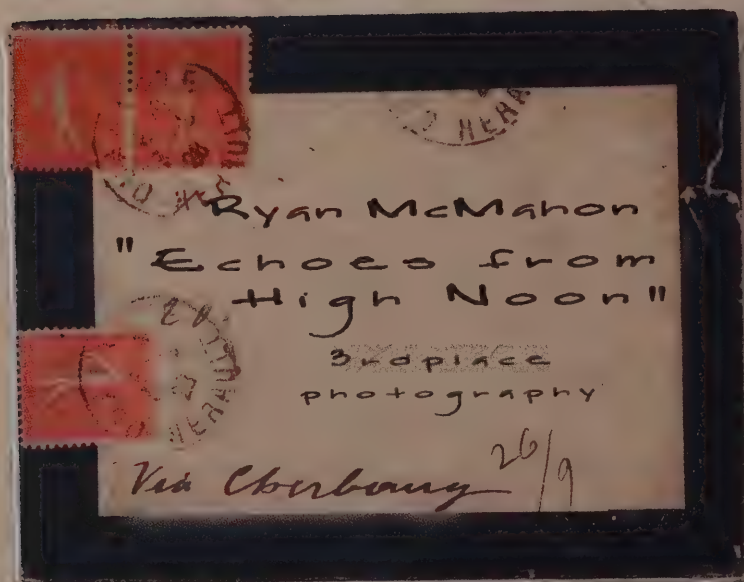 Ryan McMahon
"Echoes from
High Noon"
3rdplace
photography
Via Cherbourg 26/9